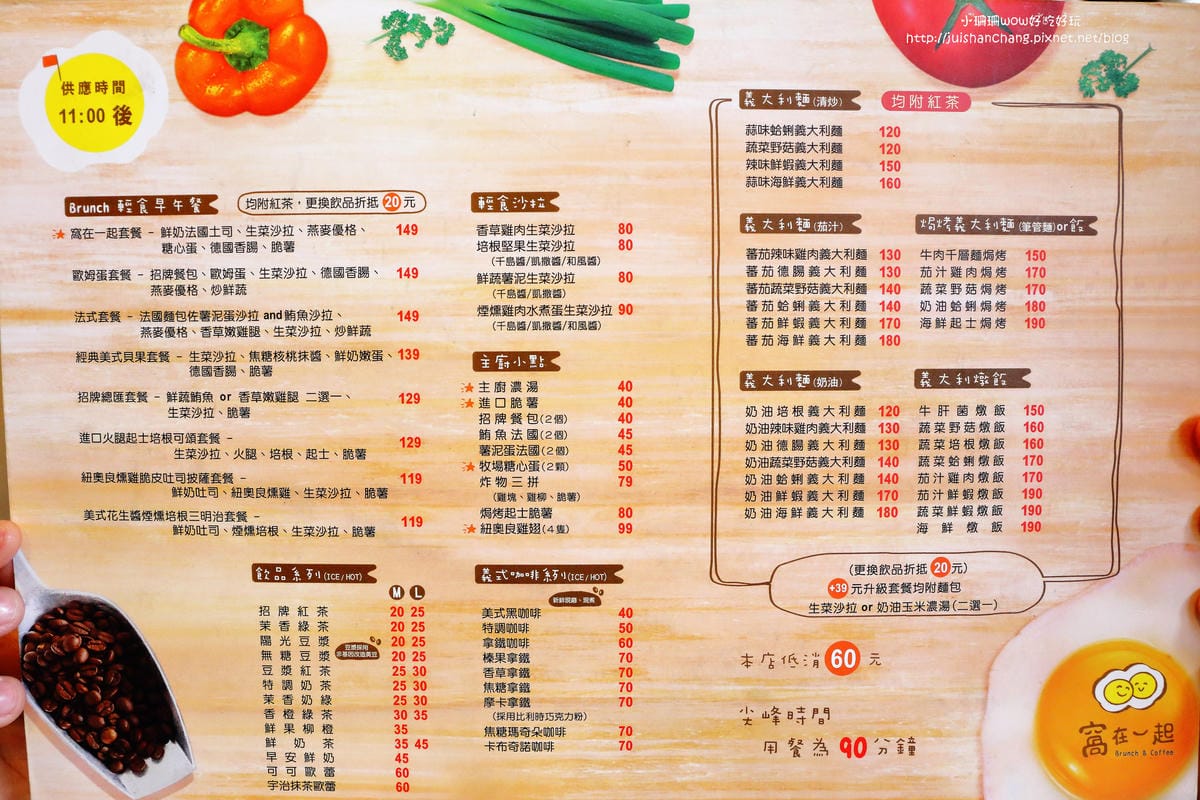 小珊珊wow好吃好玩
http://juishanchang.pixnet.net/blog
供應時間
11:00 後
Brunch 輕食早午餐
均附紅茶，更換飲品折抵 20 元
窩在一起套餐 – 鮮奶法國土司、生菜沙拉、燕麥優格、 149
糖心蛋、德國香腸、脆薯
歐姆蛋套餐 – 招牌餐包、歐姆蛋、生菜沙拉、德國香腸、 149
燕麥優格、炒鮮蔬
法式套餐 – 法國麵包佐薯泥蛋沙拉 and 鮪魚沙拉、 149
燕麥優格、香草嫩雞腿、生菜沙拉、炒鮮蔬
經典美式貝果套餐 – 生菜沙拉、焦糖核桃抹醬、鮮奶嫩蛋、 139
德國香腸、脆薯
招牌總匯套餐 – 鮮蔬鮪魚 or 香草嫩雞腿 二選一、 129
生菜沙拉、脆薯
進口火腿起士培根可頌套餐 – 129
生菜沙拉、火腿、培根、起士、脆薯
紐奧良燻雞脆皮吐司披薩套餐 – 119
鮮奶吐司、紐奧良燻雞、生菜沙拉、脆薯
美式花生醬煙燻培根三明治套餐 – 119
鮮奶吐司、煙燻培根、生菜沙拉、脆薯
飲品系列(ICE/HOT)
M L
招牌紅茶 20 25
茉香綠茶 20 25
陽光豆漿 20 25
無糖豆漿 20 25
豆漿採用
非基因改造黃豆
豆漿紅茶 25 30
特調奶茶 25 30
茉香奶綠 25 30
香橙綠茶 30 35
鮮果柳橙 35
鮮奶茶 35 45
早安鮮奶 45
可可歐蕾 60
宇治抹茶歐蕾 60
輕食沙拉
香草雞肉生菜沙拉 80
培根堅果生菜沙拉 80
(千島醬/凱撒醬/和風醬)
鮮蔬薯泥生菜沙拉 80
(千島醬/凱撒醬)
煙燻雞肉水煮蛋生菜沙拉 90
(千島醬/凱撒醬/和風醬)
主廚小點
主廚濃湯 40
進口脆薯 40
招牌餐包(2個) 40
鮪魚法國(2個) 45
薯泥蛋法國(2個) 45
牧場糖心蛋(2顆) 50
炸物三拼 79
(雞塊、雞柳、脆薯)
焗烤起士脆薯 80
紐奧良雞翅(4隻) 99
義式咖啡系列(ICE/HOT)
新鮮現磨、現煮
美式黑咖啡 40
特調咖啡 50
拿鐵咖啡 60
榛果拿鐵 70
香草拿鐵 70
焦糖拿鐵 70
摩卡拿鐵 70
(採用比利時巧克力粉)
焦糖瑪奇朵咖啡 70
卡布奇諾咖啡 70
義大利麵(清炒)
均附紅茶
蒜味蛤蜊義大利麵 120
蔬菜野菇義大利麵 120
辣味鮮蝦義大利麵 150
蒜味海鮮義大利麵 160
義大利麵(茄汁)
蕃茄辣味雞肉義大利麵 130
蕃茄德腸義大利麵 130
蕃茄蔬菜野菇義大利麵 140
蕃茄蛤蜊義大利麵 140
蕃茄鮮蝦義大利麵 170
蕃茄海鮮義大利麵 180
焗烤義大利麵(筆管麵)or飯
牛肉千層麵焗烤 150
茄汁雞肉焗烤 170
蔬菜野菇焗烤 170
奶油蛤蜊焗烤 180
海鮮起士焗烤 190
義大利麵(奶油)
奶油培根義大利麵 120
奶油辣味雞肉義大利麵 130
奶油德腸義大利麵 130
奶油蔬菜野菇義大利麵 140
奶油蛤蜊義大利麵 140
奶油鮮蝦義大利麵 170
奶油海鮮義大利麵 180
義大利燉飯
牛肝菌燉飯 150
蔬菜野菇燉飯 160
蔬菜培根燉飯 160
蔬菜蛤蜊燉飯 170
茄汁雞肉燉飯 170
茄汁鮮蝦燉飯 190
蔬菜鮮蝦燉飯 190
海鮮燉飯 190
(更換飲品折抵 20 元)
+39 元升級套餐均附麵包
生菜沙拉 or 奶油玉米濃湯(二選一)
本店低消 60 元
尖峰時間
用餐為 90 分鐘
窩在一起
Brunch & Coffee